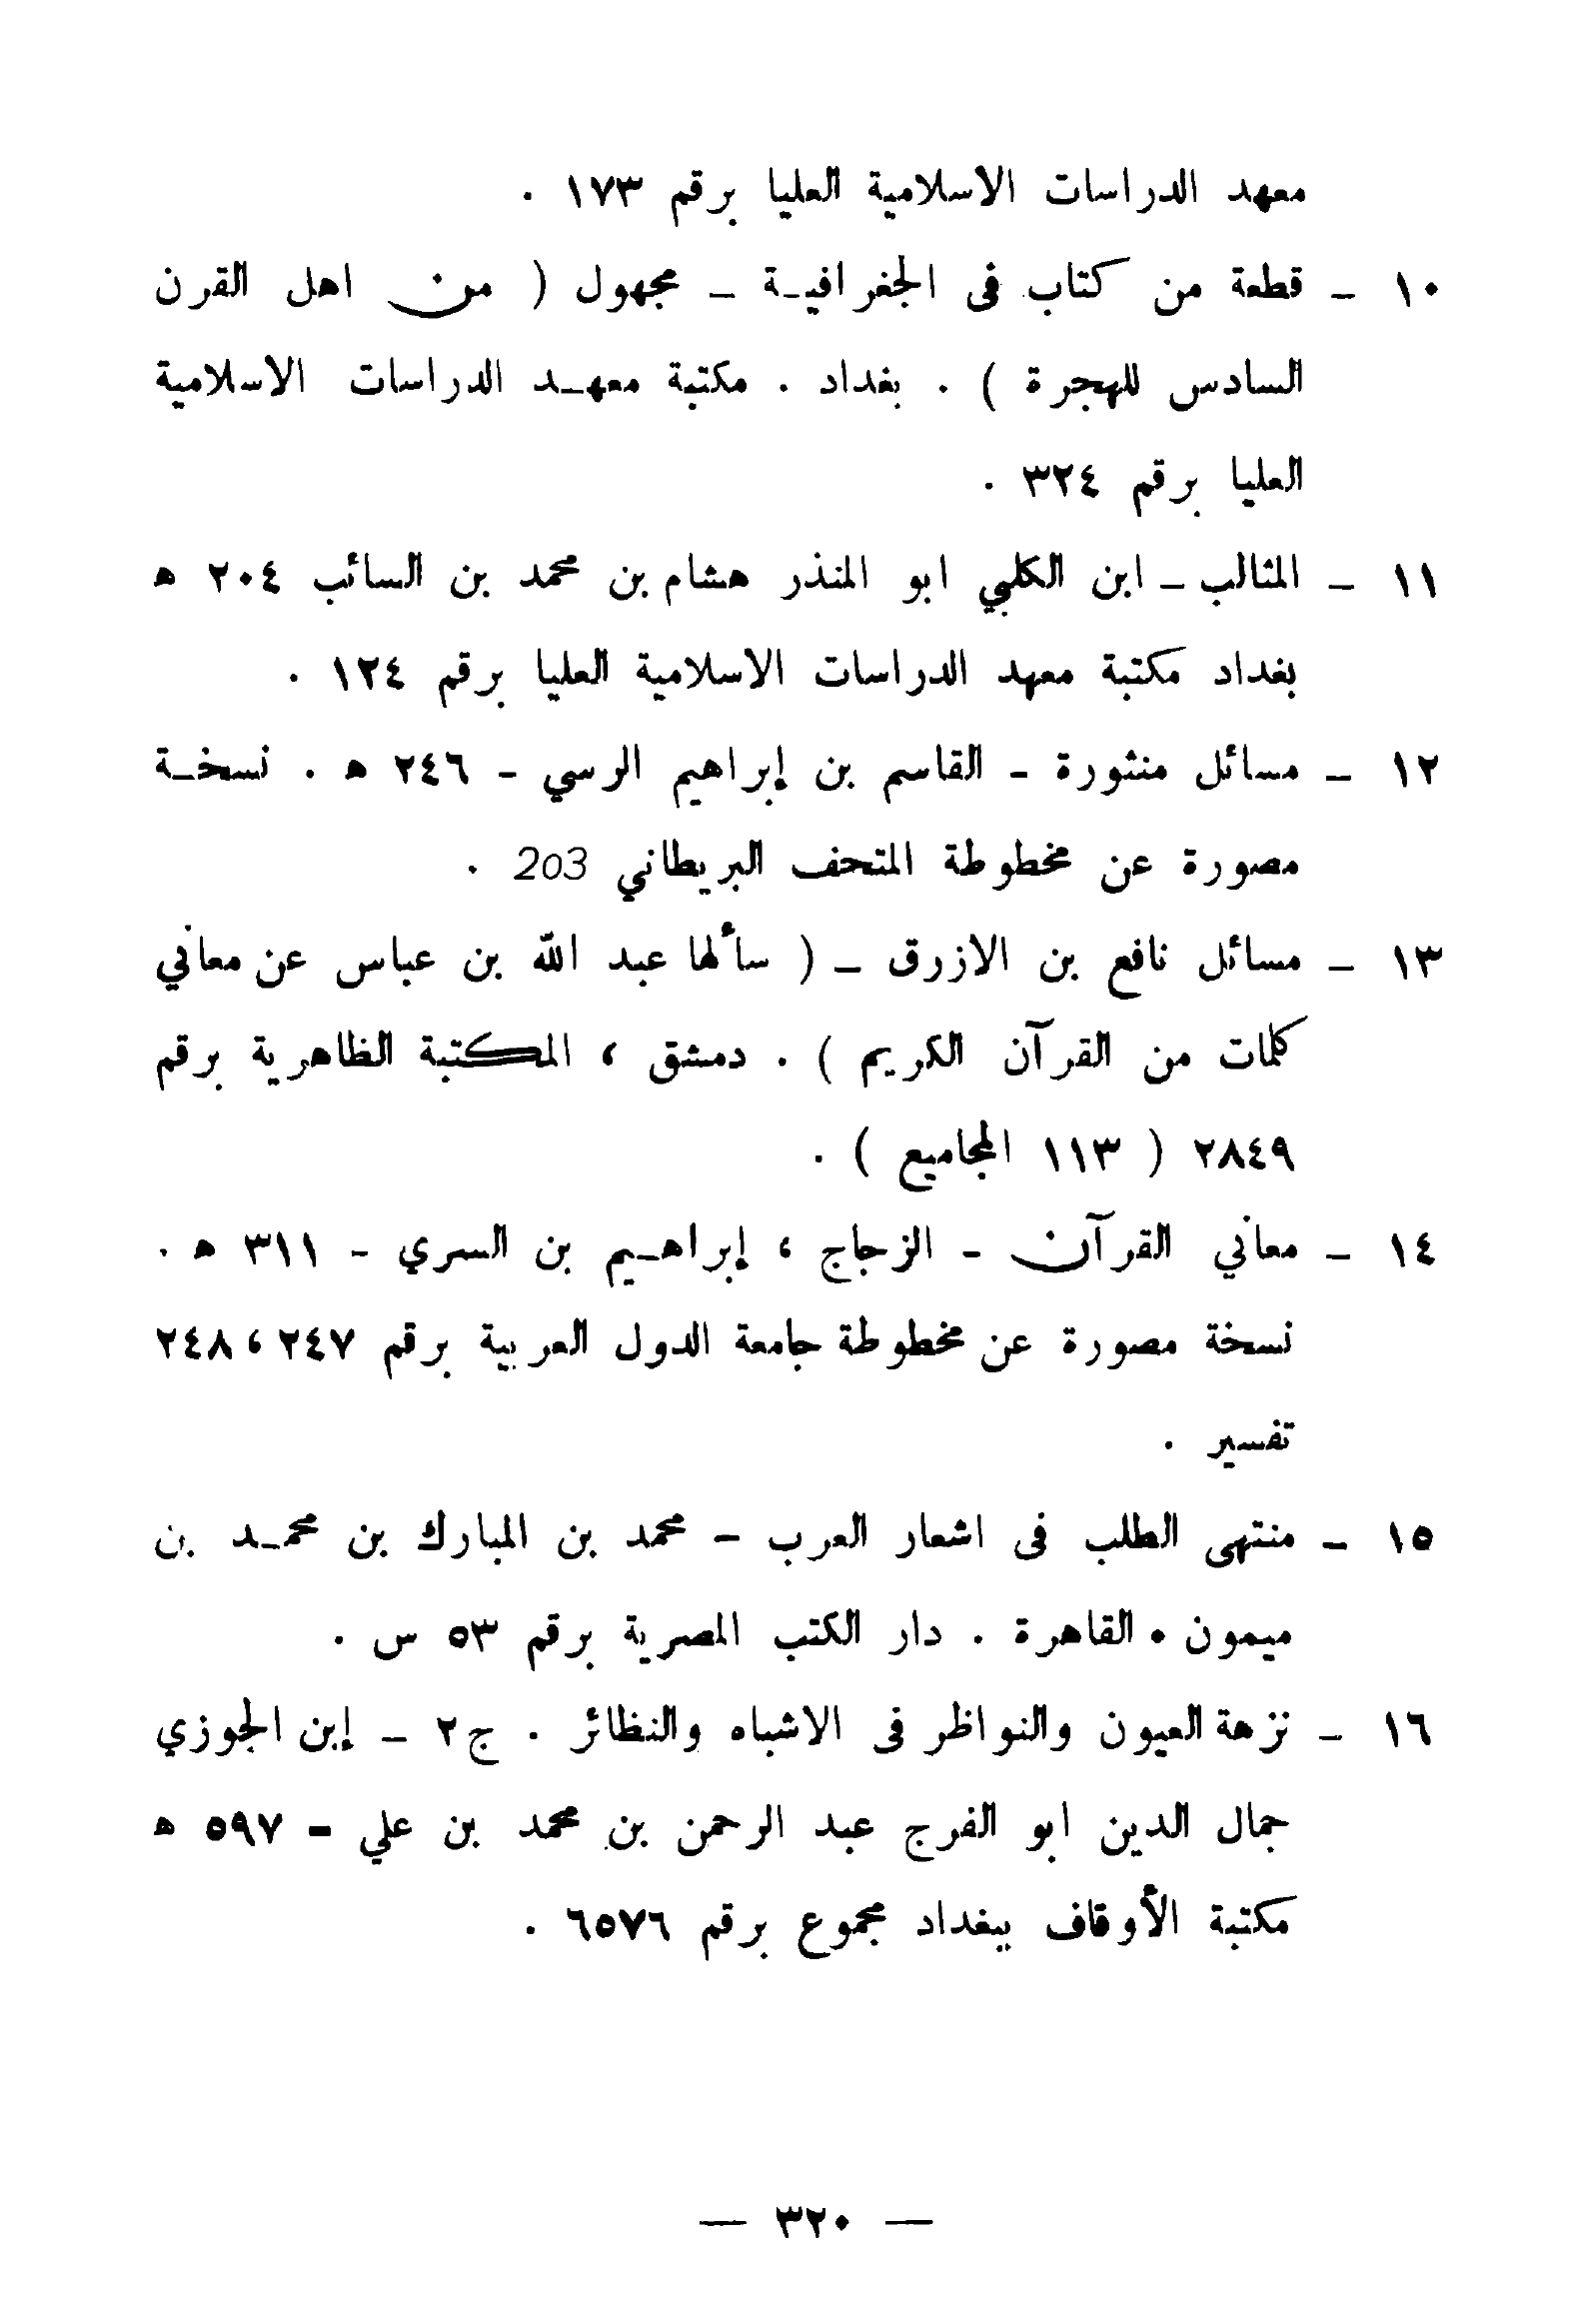 معهد الدراسات الاسلامية العليا برقم ١٧٣ .
١٠ - قطعة من كتاب فى الجغرافيـة - مجهول ( من اهل القرن
السادس للهجرة ) . بغداد . مكتبة معهـد الدراسات الاسلامية
العليا برقم ٣٢٤ .
١١ - المثالب - ابن الكلبي ابو المنذر هشام بن محمد بن السائب ٢٠٤ ه
بغداد مكتبة معهد الدراسات الاسلامية العليا برقم ١٢٤ .
١٢ - مسائل منثورة - القاسم بن إبراهيم الرسي - ٢٤٦ ه . نسخـة
مصورة عن مخطوطة المتحف البريطاني 203 .
١٣ - مسائل نافع بن الازرق - ( سألها عبد الله بن عباس عن معاني
كلمات من القرآن الكريم ) . دمشق ، المكتبة الظاهرية برقم
٢٨٤٩ ( ١١٣ المجاميع ) .
١٤ - معاني القرآن - الزجاج ، إبراهـيم بن السري - ٣١١ ه .
نسخة مصورة عن مخطوطة جامعة الدول العربية برقم ٢٤٧ ، ٢٤٨
تفسير .
١٥ - منتهى الطلب فى اشعار العرب - محمد بن المبارك بن محمـد بن
ميمون . القاهرة . دار الكتب المصرية برقم ٥٣ س .
١٦ - نزهة العيون والنواظر فى الاشباه والنظائر . ج٢ - إبن الجوزي
جمال الدين ابو الفرج عبد الرحمن بن محمد بن علي - ٥٩٧ ه
مكتبة الأوقاف ببغداد مجموع برقم ٦٥٧٦ .
— ٣٢٠ —